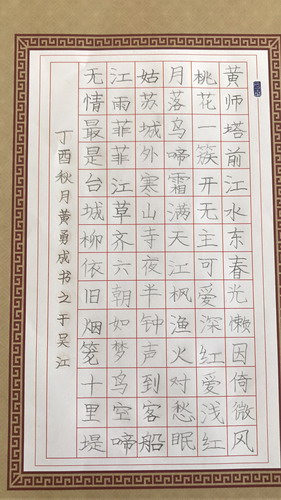 黄师塔前江水东春光懒因倚微风
桃花一簇开无主可爱深红爱浅红
月落鸟啼霜满天江枫渔火对愁眠
姑苏城外寒山寺夜半钟声到客船
江雨菲菲江草齐六朝如梦鸟空啼
无情最是台城柳依旧烟笼十里堤
丁酉秋月黄勇成书之于吴江